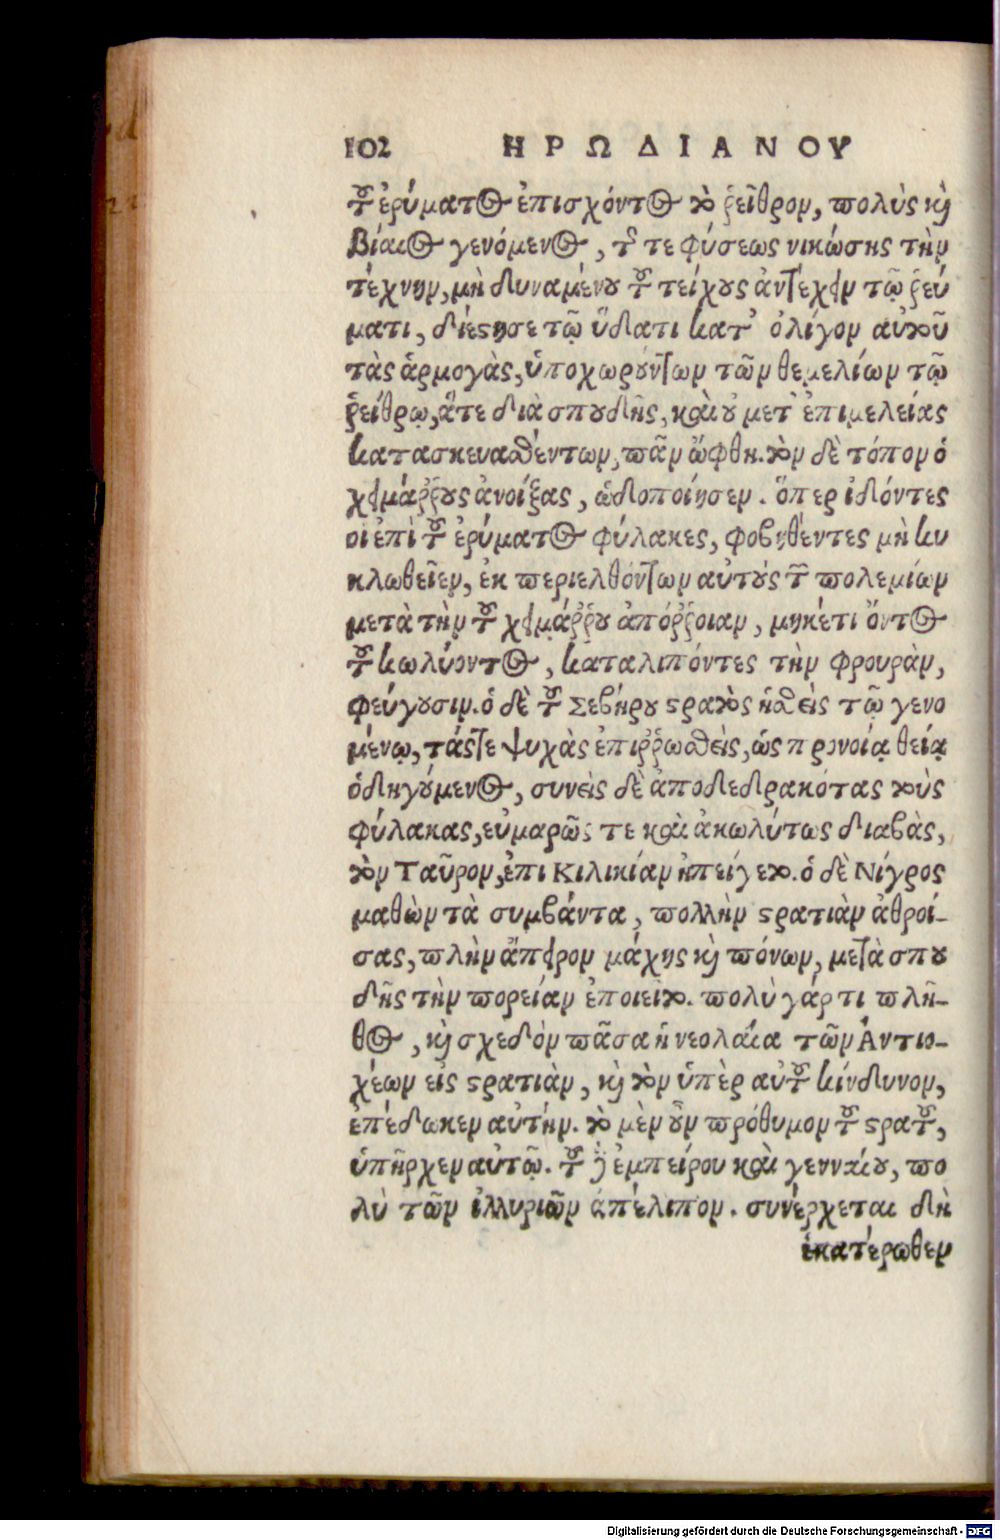 102 ΗΡΩΔΙΑΝΟΥ
τοῦ ἐρύματος ἐπισχόντος τὸ ῥεῖθρον, πολὺς καὶ
βίαιος γενόμενος, τῆς τε φύσεως νικώσης τὴν
τέχνην, μὴ δυναμένου τοῦ τείχους ἀντέχειν τῷ ῥεύ
ματι, διέστησε τῷ ὕδατι κατ' ὀλίγον αὐτοῦ
τὰς ἁρμογὰς, ὑποχωρούντων τῶν θεμελίων τῷ
ῥείθρῳ, ἅτε διὰ σπουδῆς, καὶ οὐ μετ' ἐπιμελείας
κατασκευασθέντων, πᾶν ὤφθη. τὸν δὲ τόπον ὁ
χειμάῤῥους ἀνοίξας, ὡδοποίησεν. ὅπερ ἰδόντες
οἱ ἐπὶ τοῦ ἐρύματος φύλακες, φοβηθέντες μὴ κυ
κλωθεῖεν, ἐκ περιελθόντων αὐτοὺς τῶν πολεμίων
μετὰ τὴν τοῦ χειμάῤῥου ἀπόῤῥοιαν, μηκέτι ὄντος
τοῦ κωλύοντος, καταλιπόντες τὴν φρουρὰν,
φεύγουσιν. ὁ δὲ τοῦ Σεβήρου στρατὸς ἡσθεὶς τῷ γενο
μένῳ, τάς τε ψυχὰς ἐπιῤῥωσθεὶς, ὡς προνοίᾳ θείᾳ
ὁδηγούμενος, συνεὶς δὲ ἀποδεδρακότας τοὺς
φύλακας, εὐμαρῶς τε καὶ ἀκωλύτως διαβὰς,
τὸν Ταῦρον, ἐπι Κιλικίαν ἠπείγετο. ὁ δὲ Νίγρος
μαθὼν τὰ συμβάντα, πολλὴν στρατιὰν ἀθροί-
σας, πλὴν ἄπειρον μάχης καὶ πόνων, μετὰ σπου
δῆς τὴν πορείαν ἐποιεῖτο. πολὺ γάρ τι πλῆ-
θος, καὶ σχεδὸν πᾶσα ἡ νεολαία τῶν Ἀντιο-
χέων εἰς στρατιὰν, καὶ τὸν ὑπὲρ αὐτοῦ κίνδυνον,
ἐπέδωκεν αὐτήν. τὸ μὲν οὖν πρόθυμον τοῦ στρατοῦ,
ὑπῆρχεν αὐτῷ. τοῦ δὲ ἐμπείρου καὶ γενναίου, πο
λὺ τῶν ἰλλυριῶν ἀπέλιπον. συνέρχεται δὴ
ἑκατέρωθεν
Digitalisierung gefördert durch die Deutsche Forschungsgemeinschaft - DFG